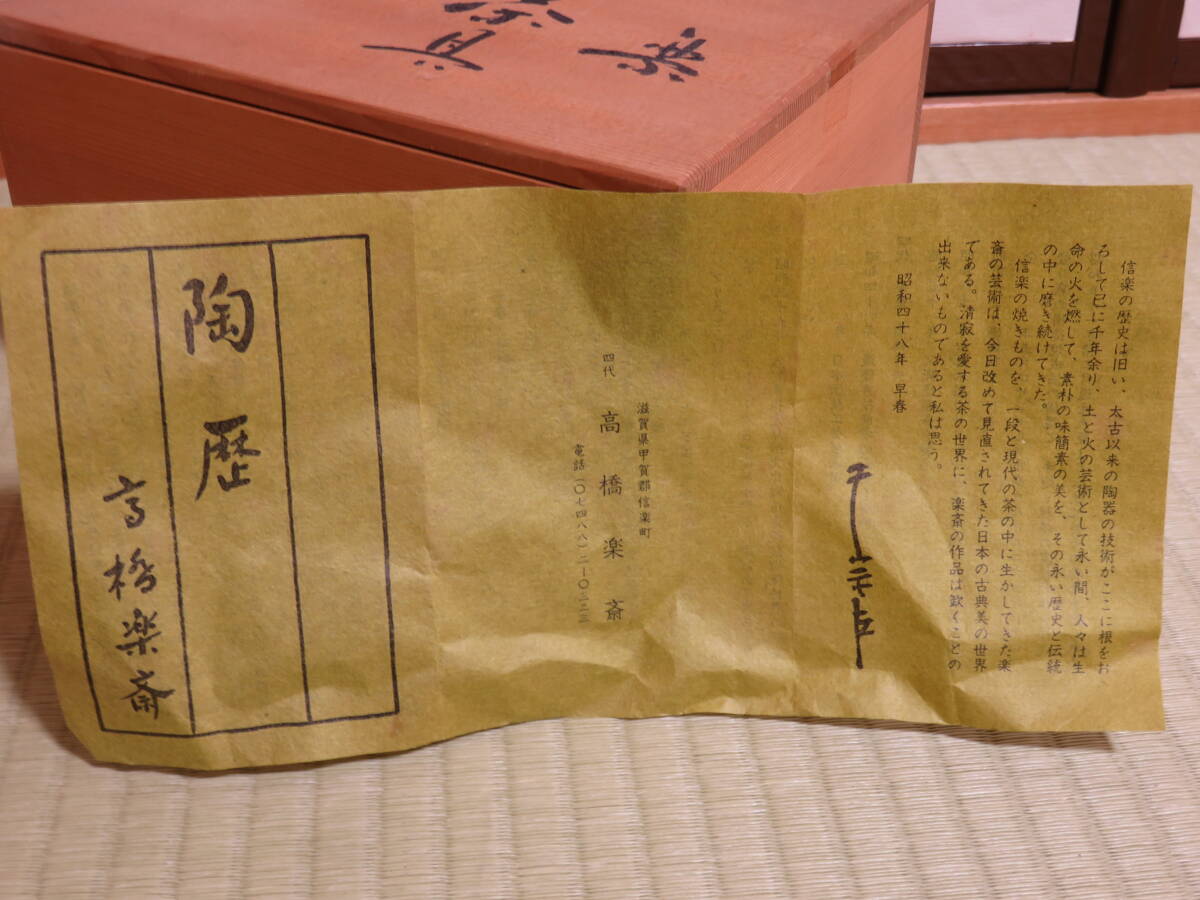 信楽の歴史は旧い、太古以来の陶器の技術がここに根をお
ろして已に千年余り、土と火の芸術として永い間、人々は生
命の火を燃して、素朴の味簡素の美を、その永い歴史と伝統
の中に磨き続けてきた。
信楽の焼きものを、一段と現代の茶の中に生かしてきた楽
斎の芸術は、今日改めて見直されてきた日本の古典美の世界
である。清寂を愛する茶の世界に、楽斎の作品は欽くことの
出来ないものであると私は思う。
昭和四十八年 早春
滋賀県甲賀郡信楽町
四代 高橋楽斎
電話(〇七四八八)二ー〇二二三
陶歴
高橋楽斎